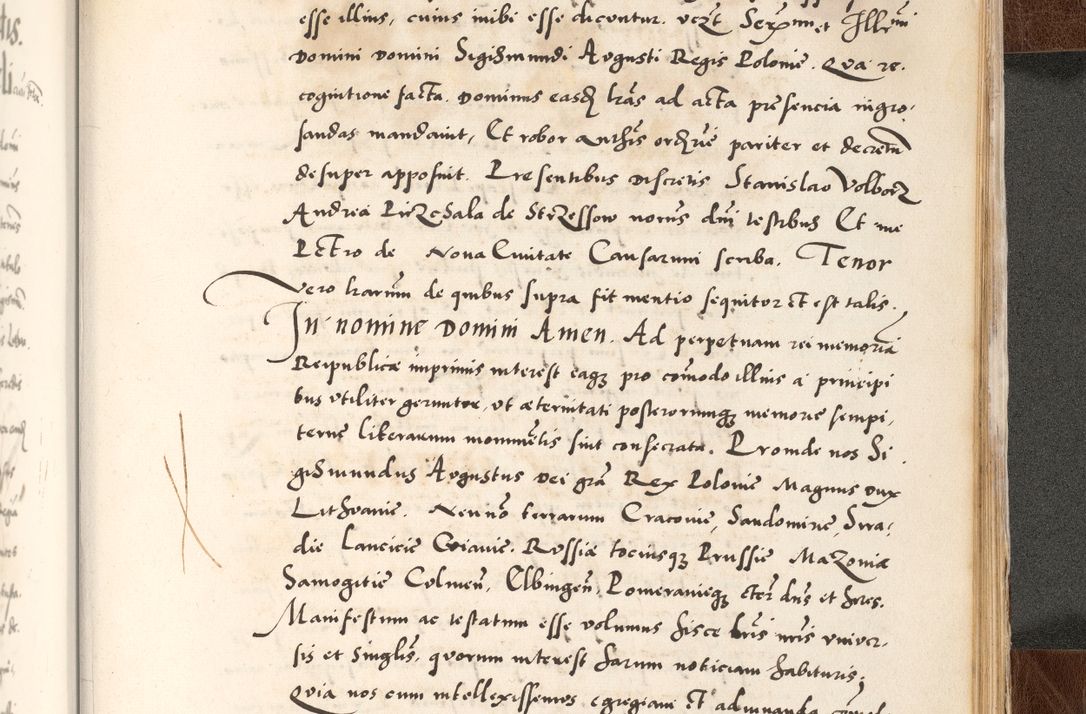 esse illius, cuius inibi esse dicuntur. vczt Serxmi et Illrmi
Domini Domini Sigismundi Augusti Regis Polonie. Qua re,
cognitione facta. Dominus easdē lrās ad acta presencia ingro,
sandas mandavit, Et robor authīs ordrūe pariter et decretū
desuper apposuit. Presentibus Discretis Stanislao Volborz
Andrea de Strzessow norūs dni testibus Et me
Petro de Nova Civitate Causarum scriba. Tenor
vero lrarum de quibus supra fit mentio sequitor et est talis.
In nomine Domini Amen. Ad perpetuam rei memoriā
Reipublicæ imprimis interest eaqȝ pro cōmodo illius a principi
bus utiliter geruntor, ut æternitati posterorumqȝ memorie sempi,
terne literarum monumētis sint consecrata. Proinde nos Si
gismundus Augustus Dei grā Rex Polonie Magnus Dux
Lithvanie. Necnō terrarum Cracovie, Sandomirie, Sira,
die Lancicie Coiavie. Russiæ tociusqȝ Prussie Mazoniæ
Samogitie Culmeñ, Elbingeñ, Pomeranieqȝ etc: dñs et hres.
Manifestum ac testatum esse volumus hisce lrīs nrīs univer,
sis et singlīs. quorum interest harum noticiam habituris;
Quia nos cum intellexissemus egregiam et